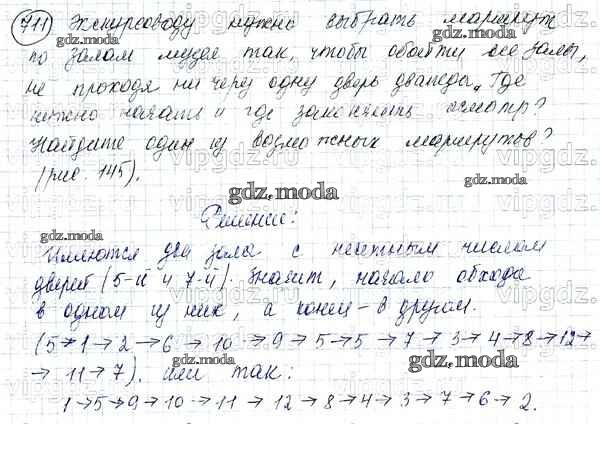 711 Экскурсоводу нужно выбрать маршрут
по залам музея так, чтобы обойти все залы,
не проходя ни через одну дверь дважды. Где
нужно начать и где закончить осмотр?
Найдите один из возможных маршрутов?
(рис. 145).
Решение:
Имеются два зала с нечетным числом
дверей (5-й и 7-й). Значит, начало обхода
в одном из них, а конец - в другом.
(5→1→2→6→10→9→5→5→7→3→4→8→12→
→11→7). Или так:
1→5→9→10→11→12→8→4→3→7→6→2.
gdz.moda
gdz.moda
gdz.moda
gdz.moda
gdz.moda
gdz.moda
gdz.moda
gdz.moda
gdz.moda